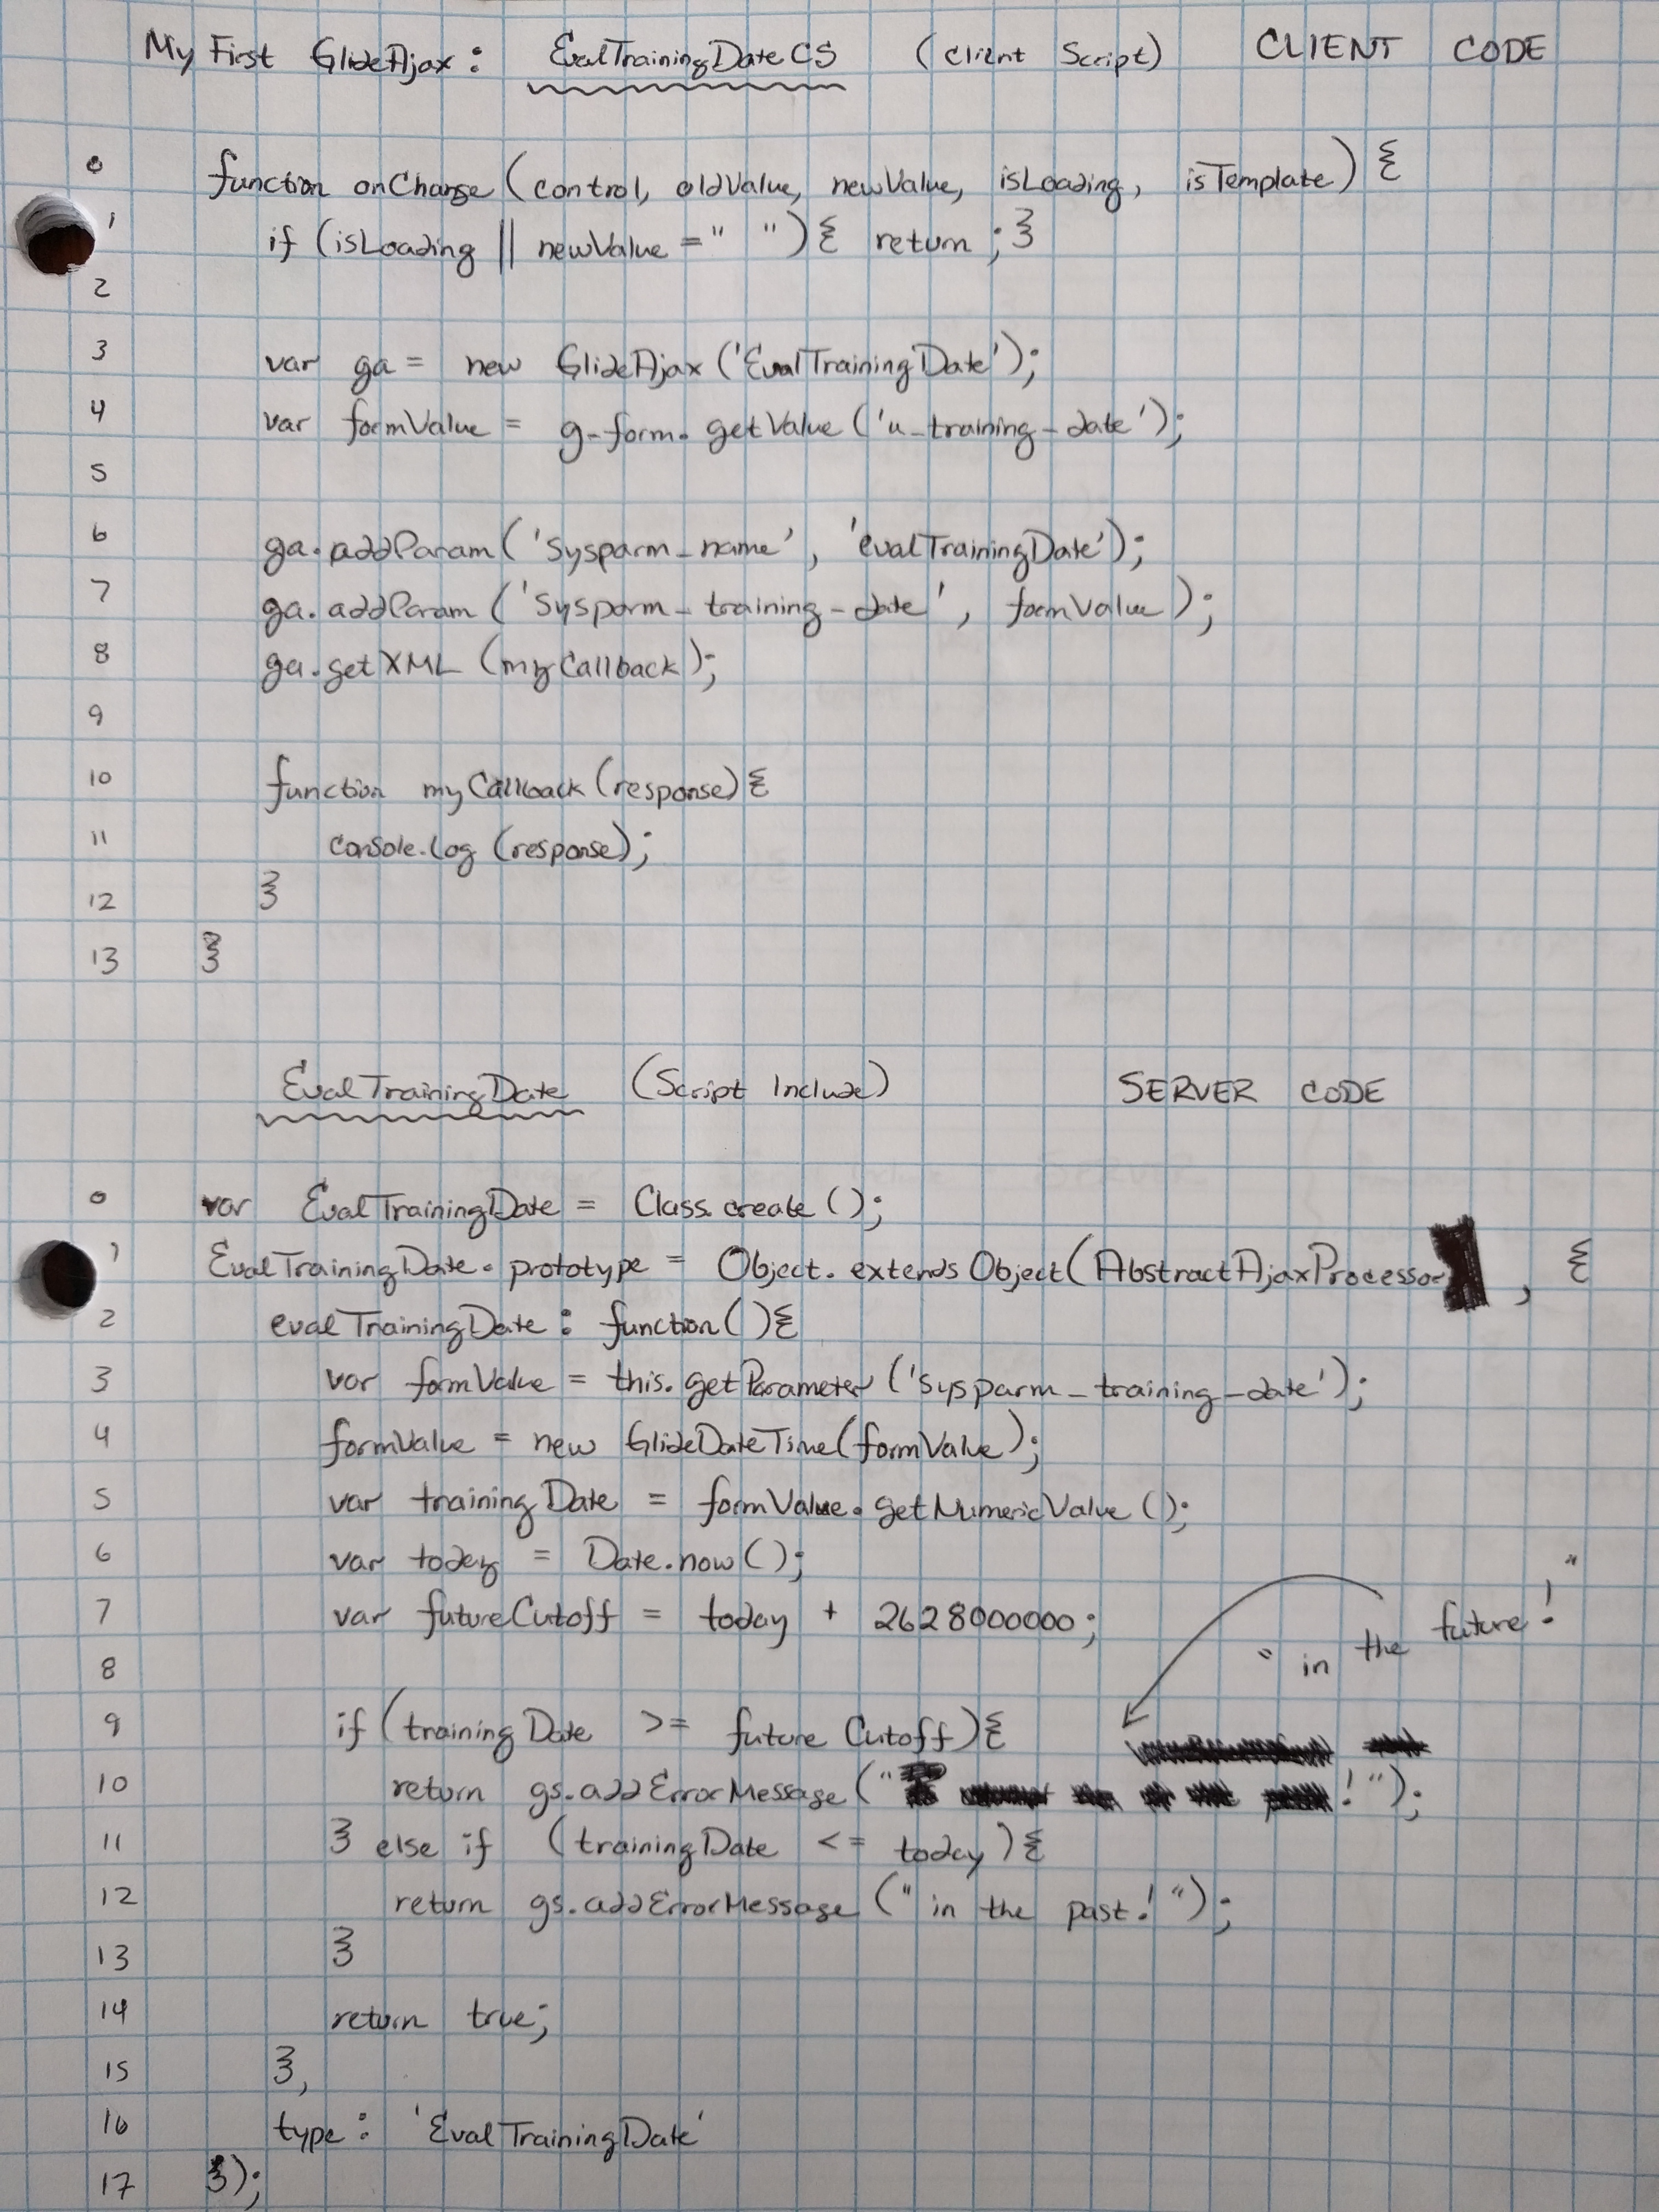 My First GlideAjax: EvalTrainingDateCS (Client Script) CLIENT CODE
0 function onChange (control, oldValue, newValue, isLoading, isTemplate) {
1 if (isLoading || newValue = " ") { return ; }
2
3 var ga = new GlideAjax ('EvalTrainingDate');
4 var formValue = g_form.getValue ('u_training_date');
5
6 ga.addParam ('sysparm_name', 'evalTrainingDate');
7 ga.addParam ('sysparm_training_date', formValue);
8 ga.getXML (myCallback);
9
10 function myCallback (response) {
11 console.log (response);
12 }
13 }
EvalTrainingDate (Script Include) SERVER CODE
0 var EvalTrainingDate = Class.create ();
1 EvalTrainingDate.prototype = Object.extendsObject(AbstractAjaxProcessor, {
2 evalTrainingDate: function() {
3 var formValue = this.getParameter ('sysparm_training_date');
4 formValue = new GlideDateTime(formValue);
5 var trainingDate = formValue.getNumericValue ();
6 var today = Date.now();
7 var futureCutoff = today + 2628000000;
" in the future! "
8
9 if (trainingDate >= futureCutoff) {
10 return gs.addErrorMessage (" ! ");
11 } else if (trainingDate <= today) {
12 return gs.addErrorMessage (" in the past! ");
13 }
14 return true;
15 },
16 type: 'EvalTrainingDate'
17 });